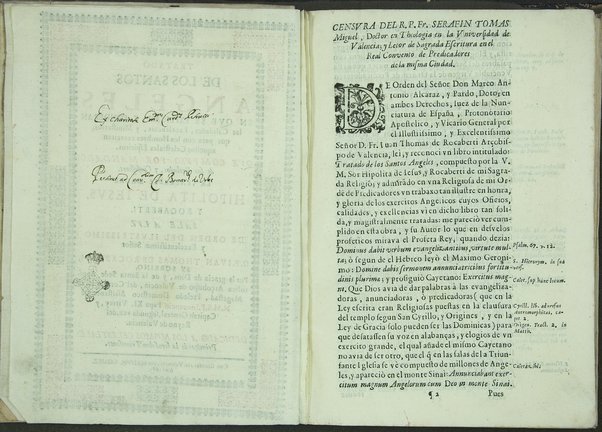 CENSVRA DEL R. P. Fr. SERAFIN TOMAS
Miguel, Doctor en Theologia en la Vniversidad de
Valencia, y Letor de Sagrada Escritura en el
Real Convento de Predicadores
de la misma Ciudad.
DE Orden del Señor Don Marco An-
tonio Alcaraz, y Pardo, Dotor en
ambos Derechos, Iuez de la Nun-
ciatura de España, Protonotario
Apostolico, y Vicario General por
el Illustrissimo, y Excelentissimo
Señor D. Fr. Iuan Thomas de Rocaberti Arçobis-
po de Valencia, lei, y reconoci vn libro intitulado:
Tratado de los Santos Angeles, compuesto por la V.
M. Sor Hipolita de Iesus, y Rocaberti de mi Sagrada
Religiõ; y admirado en vna Religiosa de mi Or-
dẽ de Predicadores vn trabaxo tan illustre en honra,
y gloria de los exercitos Angelicos cuyos Oficios,
calidades, y excellencias vi en dicho libro tan soli-
da, y magistralmente tratadas: me parecio ver cum-
plido en esta obra, y su Autor lo que en desvelos
profeticos mirava el Profeta Rey, quando dezia:
Dominus dabit verbum evangelizantibus, virtute mul-
ta; ò segun de el Hebreo leyò el Maximo Geroni-
mo: Domine dabis sermonem annunciatricibus fortitu-
dinis plurimæ; y prosiguiò Cayetano: Exercitus mag-
ni. Que Dios avia de dar palabras à las evangeliza-
doras, anunciadoras, ò predicadoras (que en la
Ley escrita eran Religiosas puestas en la clausura
del templo segun San Cyrillo, y Origines, y en la
Ley de Gracia solo pueden ser las Dominicas) para
que desatassen su voz en alabanças, y elogios de vn
exercito grande, el qual añade el mismo Cayetano
no avia de ser otro, que el q̃ en las salas de la Triun-
fante Iglesia se vè compuesto de millones de Ange-
les, y apareciò en el monte Sinai: Annunciabant exer-
citum magnum Angelorum cum Deo in monte Sinai.
¶ 2 Pues
Psalm. 67. v. 12.
S. Hieronym. in suã
vers.
Caiet. sup. hunc locum.
Cyrill. lib. adversus
Antromorphitas, ca-
pt. 2.
Origen. Tract. 2. in
Matth.
Caietan. hic.